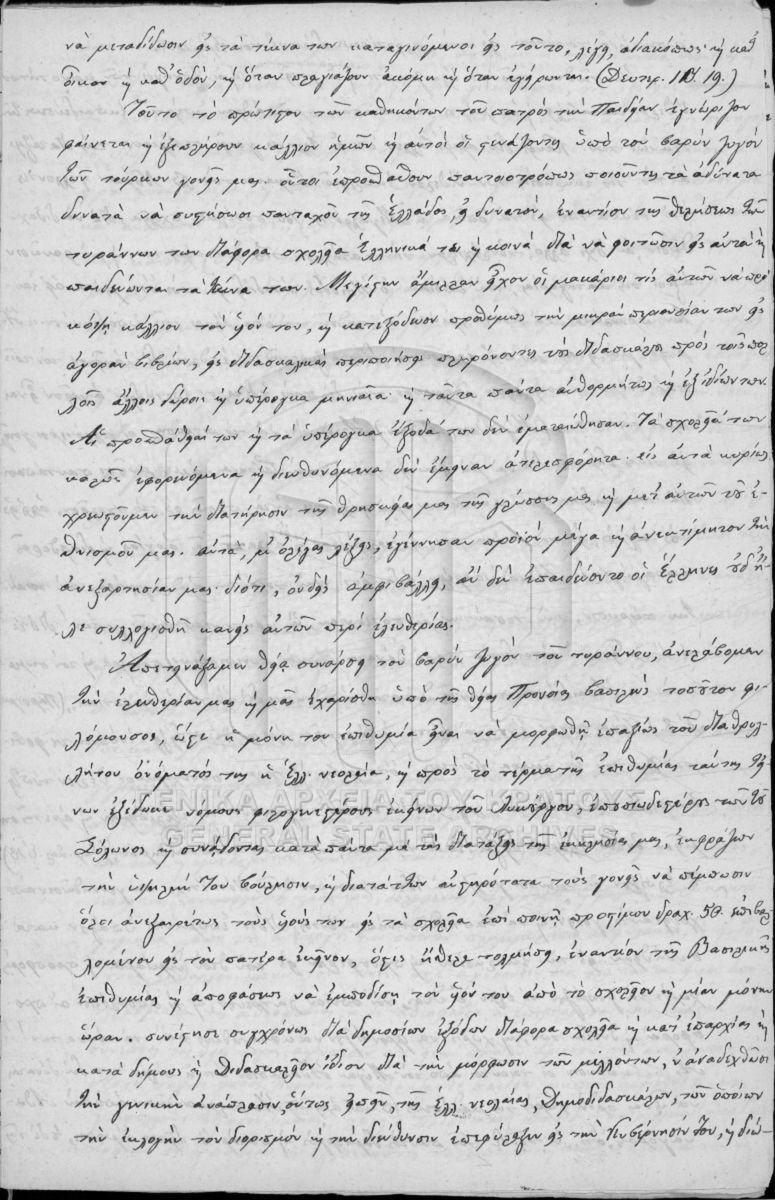 νὰ μεταδίδωσιν εἰς τὰ τέκνα των καταγινόμενοι εἰς τοῦτο, λέγει, ἀδιακόπως καὶ κατ'
οἶκον καὶ καθ' ὁδὸν, καὶ ὅταν πλαγιάζουν ἀκόμη καὶ ὅταν ἐγείρωνται. (Δευτερ. 19.)
Τοῦτο τὸ πρώτιστον τῶν καθηκόντων τοῦ πατρὸς τὴν Παιδείαν ἐγνώριζον
φαίνεται καὶ ἐξεπλήρουν κάλλιον ἡμῶν καὶ αὐτοὶ οἱ στενάζοντες ὑπὸ τὸν βαρὺν ζυγὸν
τῶν τούρκων γονεῖς μας. οὗτοι ἐπροσπάθουν παντοιοτρόπως ποιοῦντες τὰ ἀδύνατα
δυνατὰ νὰ συστήσωσι πανταχοῦ τῆς Ἑλλάδος, εἰ δυνατὸν, ἐναντίον τῆς θελήσεως τῶν
τυράννων των διάφορα σχολεῖα Ἑλληνικά τε καὶ κοινὰ διὰ νὰ φοιτῶσιν εἰς αὐτὰ καὶ
παιδεύωνται τὰ τέκνα των. Μεγίστην ἅμιλλαν εἶχον οἱ μακάριοι τίς αὐτῶν νὰ προ
κόψῃ κάλλιον τὸν υἱόν του, καὶ κατεξόδευον προθύμως τὴν μικρὰν περιουσίαν των εἰς
ἀγορὰν βιβλίων, εἰς διδασκαλικὰς περιποιήσεις πληρόνοντες τοὺς διδασκάλους πρὸς τοῖς πολ
λοῖς ἄλλοις δώροις καὶ ὑπέρογκα μηνιαῖα· καὶ ταῦτα πάντα αὐθορμήτως καὶ ἐξ ἰδίων των.
Αἱ προσπάθειαί των καὶ τὰ ὑπέρογκα ἔξοδά των δὲν ἐματαιώθησαν. Τὰ σχολεῖά των
καλῶς ἐφορευόμενα καὶ διευθυνόμενα δὲν ἔμειναν ἀτελεσφόρητα· εἰς αὐτὰ κυρίως
χρεωστοῦμεν τὴν διατήρησιν τῆς θρησκείας μας τῆς γλώσσης μας καὶ μετ' αὐτῶν τοῦ ἐ-
θνισμοῦ μας. αὐτὰ, μ' ὀλίγας λέξεις, ἐγέννησαν προϊὸν μέγα καὶ ἀνεκτίμητον τὴν
ἀνεξαρτησίαν μας· διότι, οὐδεὶς ἀμφιβάλλει, ἂν δὲν ἐπαιδεύοντο οἱ Ἕλληνες οὐδ' ἤ-
λε συλλογισθῆ κανεὶς αὐτῶν περὶ ἐλευθερίας.
Ἀπετινάξαμεν θείᾳ συνάρσει τὸν βαρὺν ζυγὸν τοῦ τυράννου, ἀνελάβομεν
τὴν ἐλευθερίαν μας καὶ μᾶς ἐχαρίσθη ὑπὸ τῆς θείας Προνοίας βασιλεὺς τοσοῦτον φι-
λόμουσος, ὥστε ἡ μόνη του ἐπιθυμία εἶναι νὰ μορφωθῇ ἐπαξίως τοῦ διαθρυλ-
λήτου ὀνόματός της ἡ ἑλλ. νεολαία, καὶ πρὸς τὸ τέρμα τῆς ἐπιθυμίας ταύτης τεί-
νων ἐξέδωκε νόμους φιλογενεστέρους ἐκείνων τοῦ Λυκούργου, ἐπουσιωδεστέρους τῶν τοῦ
Σόλωνος καὶ συνάδοντας κατὰ πάντα μὲ τὰς διατάξεις τῆς ἐκκλησίας μας, ἐκφράζων
τὴν ὑψηλήν Του βούλησιν, καὶ διατάττων αὐστηρότατα τοὺς γονεῖς νὰ πέμπωσιν
ὅλοι ἀνεξαιρέτως τοὺς υἱούς των εἰς τὰ σχολεῖα ἐπὶ ποινῇ προστίμου δραχ. 50. ἐπιβαλ
λομένου εἰς τὸν πατέρα ἐκεῖνον, ὅστις ἤθελε τολμήσει, ἐναντίον τῆς Βασιλικῆς
ἐπιθυμίας καὶ ἀποφάσεως νὰ ἐμποδίσῃ τὸν υἱόν του ἀπὸ τὸ σχολεῖον καὶ μίαν μόνην
ὥραν. συνέστησε συγχρόνως διὰ δημοσίων ἐξόδων διάφορα σχολεῖα καὶ κατ' ἐπαρχίας καὶ
κατὰ δήμους καὶ Διδασκαλεῖον ἴδιον διὰ τὴν μόρφωσιν τῶν μελλόντων, ν' ἀναδεχθῶσι
τὴν γενικὴν ἀνάπλασιν, οὕτως εἰπεῖν, τῆς ἑλλ. νεολαίας, Δημοδιδασκάλων, τῶν ὁποίων
τὴν ἐκλογὴν τὸν διορισμὸν καὶ τὴν διεύθυνσιν ἐπεφύλαξεν εἰς τὴν Κυβέρνησίν Του, καὶ διώ-
ΓΕΝΙΚΑ ΑΡΧΕΙΑ ΤΟΥ ΚΡΑΤΟΥΣ
GENERAL STATE ARCHIVES